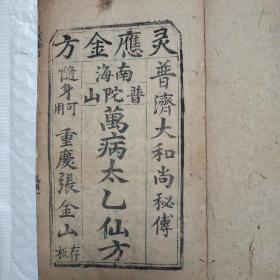 灵應金方
普濟大和尚秘傳
南海普陀山
萬病太乙仙方
隨身可用
重慶張金山存板